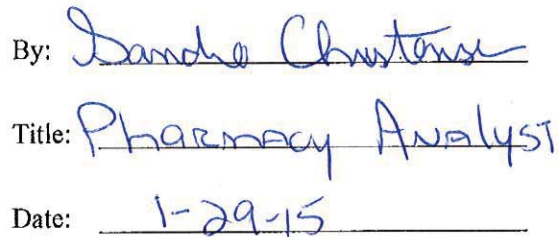 By: Sandra Christensen
Title: Pharmacy Analyst
Date: 1-29-15